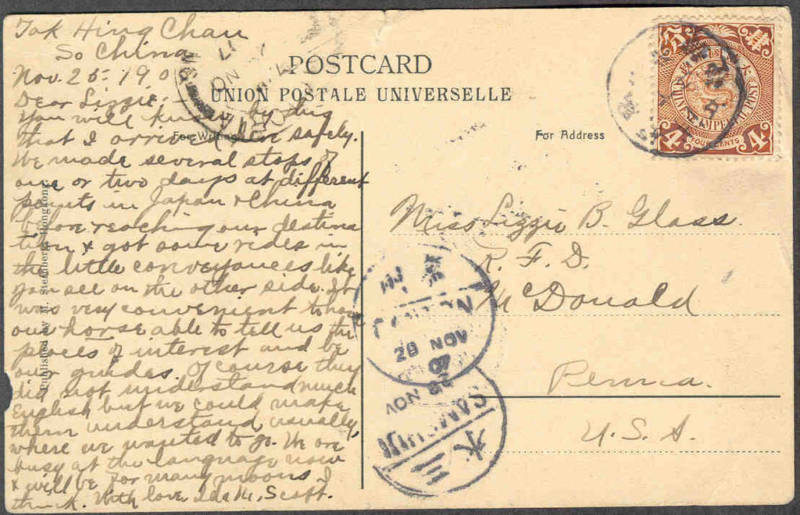 Tak Hing Chau
So China
Nov. 25-190
Dear Lizzie,
You will know by this
that I arrived here safely.
We made several stops of
one or two days at different
points in Japan & China
before reaching our destina
tion & got some rides in
the little conveyances like
you see on the other side. It
was very convenient to have
our horse able to tell us the
places of interest and be
our guides. Of course they
did not understand much
English but we could make
them understand usually,
where we wanted to go. We are
busy at the language now
& will be for many moons I
think. With love, Ida M. Scott.
POSTCARD
UNION POSTALE UNIVERSELLE
For Address
Miss Lizzie B. Glass
R. F. D.
McDonald
Penna.
U. S. A.
CHINESE IMPERIAL POST
4 FOUR CENTS 4
CANTON
28 NOV
07
NOV
SAMSHUI
三水
Hongkong